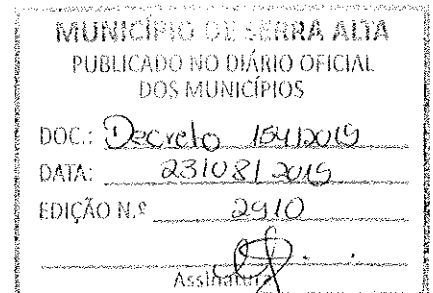 MUNICÍPIO DE SERRA ALTA
PUBLICADO NO DIÁRIO OFICIAL
DOS MUNICÍPIOS
DOC.: Decreto 154/2019
DATA: 23/08/2019
EDIÇÃO N.º 2910
Assinatura